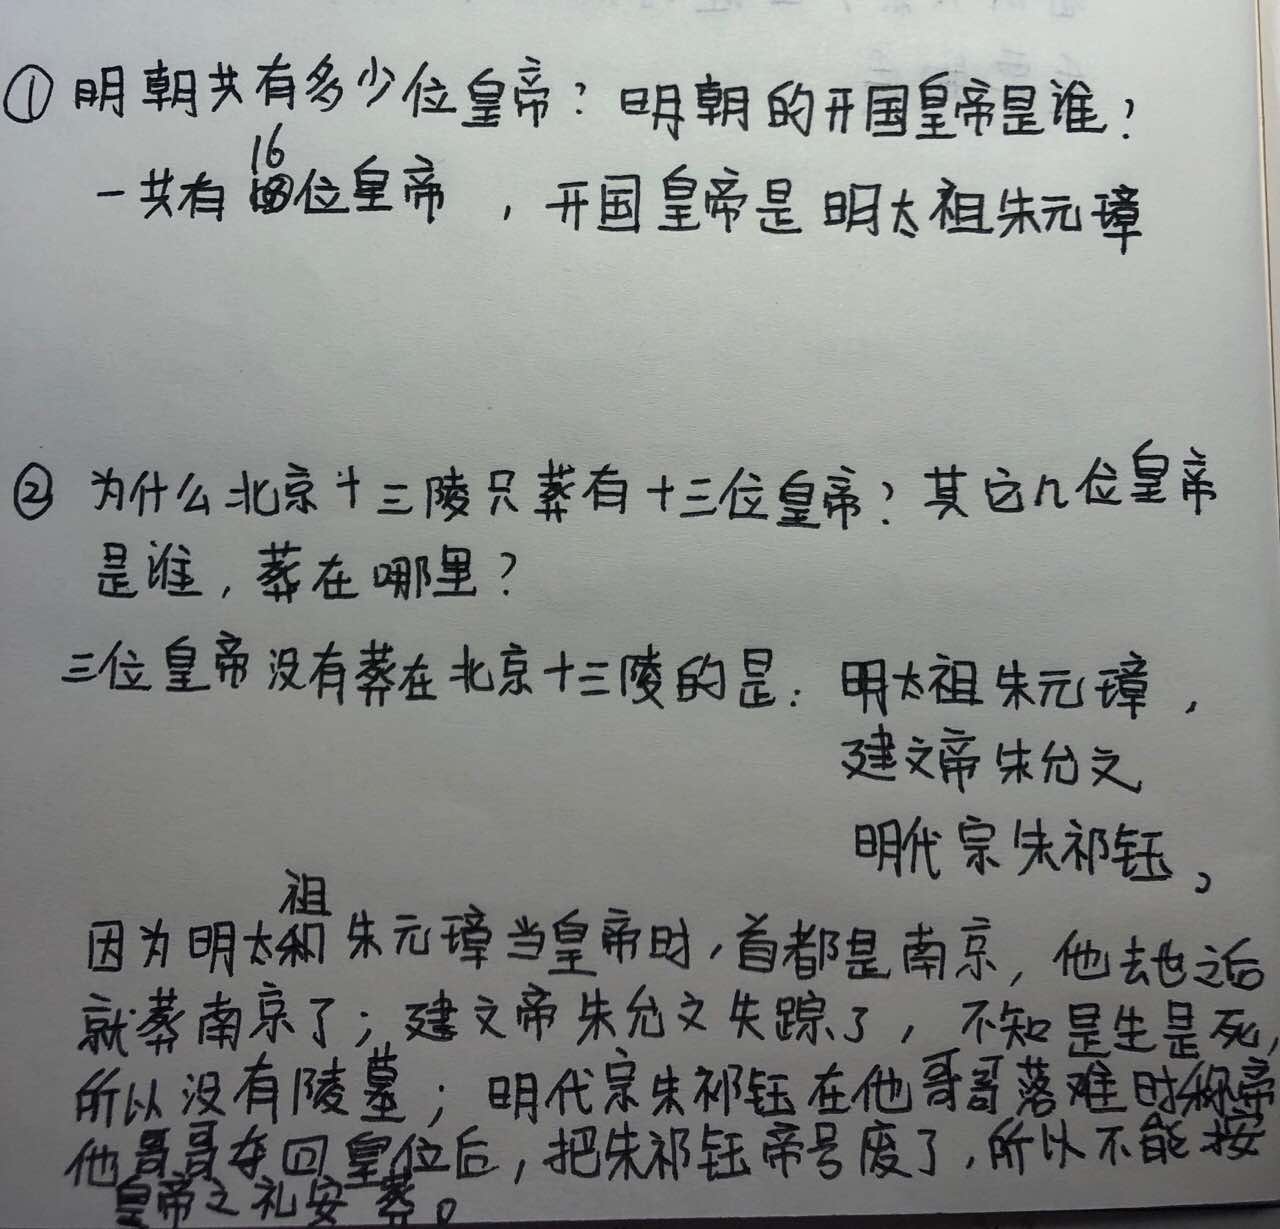 ① 明朝共有多少位皇帝？明朝的开国皇帝是谁？
16
一共有位皇帝，开国皇帝是明太祖朱元璋
② 为什么北京十三陵只葬有十三位皇帝？其它几位皇帝
是谁，葬在哪里？
三位皇帝没有葬在北京十三陵的是：明太祖朱元璋，
建文帝朱允文
明代宗朱祁钰，
祖
因为明太和朱元璋当皇帝时，首都是南京，他去世之后
就葬南京了；建文帝朱允文失踪了，不知是生是死，
所以没有陵墓；明代宗朱祁钰在他哥哥落难时称帝
他哥哥夺回皇位后，把朱祁钰帝号废了，所以不能按
皇帝之礼安葬。